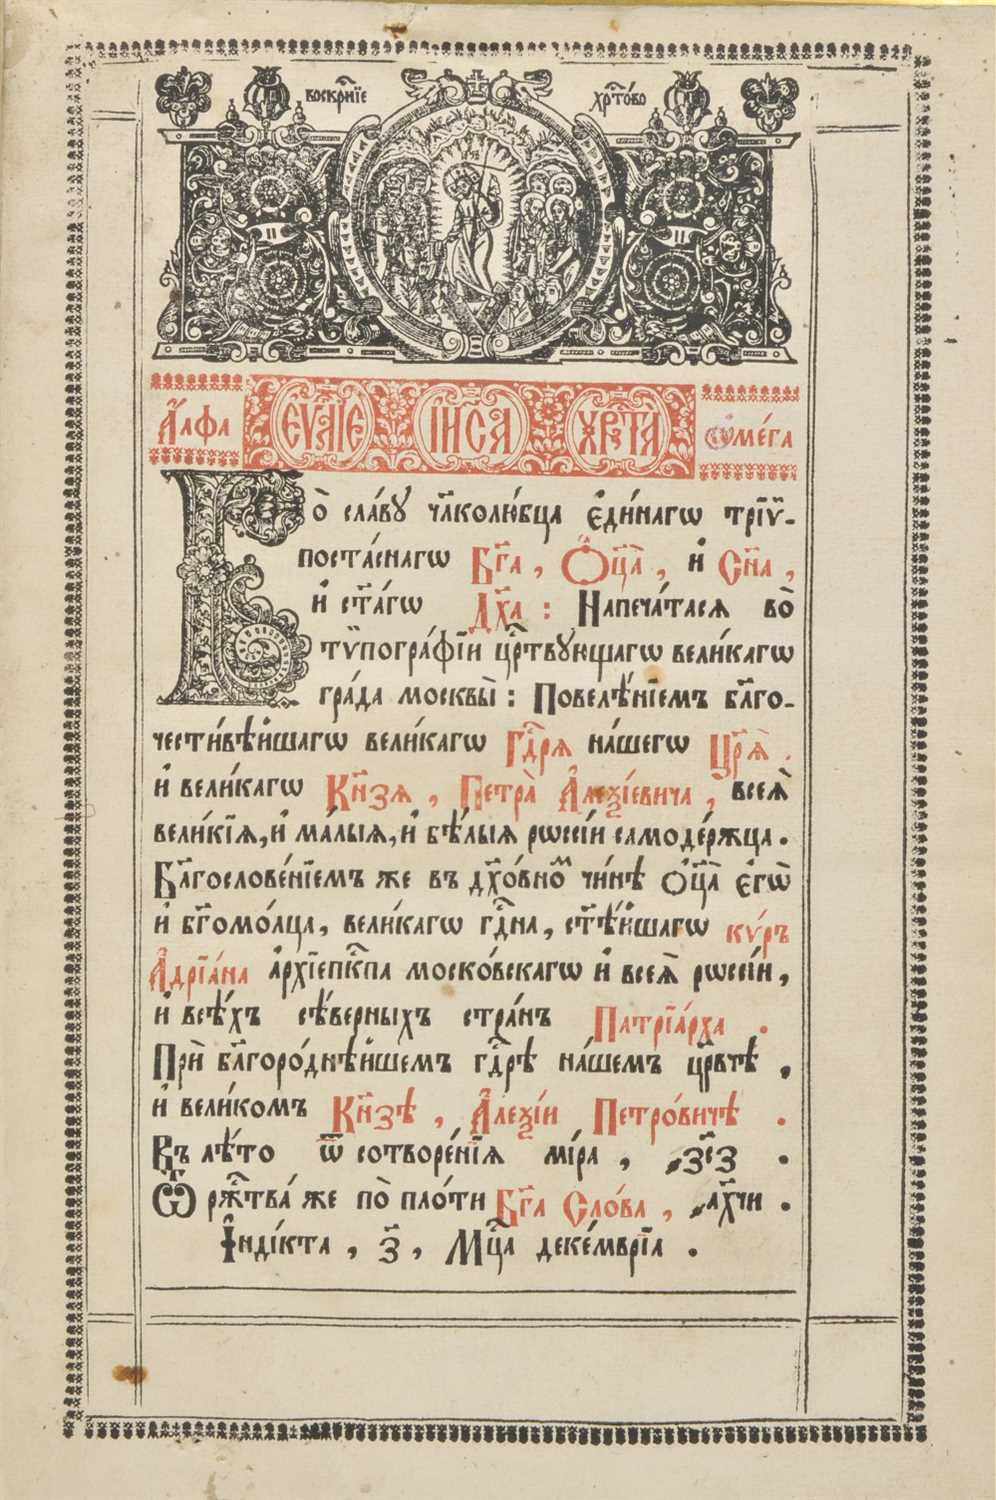 воскрн҃їе хрⷭ҇то́во
А҆́лфа ЕѴ҃ЛІЕ ІИ҃СА ХРⷭ҇ТА̀ ѡ҆ме́га
Во̀ сла́вꙋ чл҃колю́бца є҆ди́нагѡ трїѵ-
поста́снагѡ Бг҃а, Ѻ҆ц҃а̀, и҆ Сн҃а,
и҆ ст҃а́гѡ Дх҃а: Напеча́тасѧ во̀
тѷпогра́фїи црⷭ҇твꙋющагѡ вели́кагѡ
гра́да москвы̀: Повелѣ́нїемъ бл҃го-
чести́вѣйшагѡ вели́кагѡ Гдⷭ҇рѧ на́шегѡ Цр҃ѧ̀.
и҆ вели́кагѡ Кн҃зѧ, Петра̀ А҆леѯі́евича, всеѧ̀
вели́кїѧ, и҆ ма́лыѧ, и҆ бѣ́лыѧ рѡссі́и самоде́ржца.
Бл҃гослове́нїемъ же въ дх҃о́вноⷨ чи́нѣ ѻ҆ц҃а̀ є҆гѡ̀
и҆ бг҃омо́лца, вели́кагѡ гдⷭ҇на, ст҃ѣ́йшагѡ кѵ́ръ
А҆дрїа́на а҆рхїепⷭ҇кпа моско́вскагѡ и҆ всеѧ̀ рѡссі́и,
и҆ всѣ́хъ сѣ́верныхъ стра́нъ Патрїа́рха.
Прѝ бл҃горо́днѣйшемъ гдⷭ҇рѣ на́шемъ цр҃вчѣ,
и҆ вели́комъ Кн҃зѣ, А҆леѯі́и Петро́вичѣ.
Въ лѣ́то ѿ сотворе́нїѧ мі́ра, ҂зс҃з.
Ѿ ржⷭ҇тва́ же по̀ пло́ти Бг҃а Сло́ва, ҂ах҃чи.
І҆нді́кта, з҃, Мцⷭ҇а деке́мврїа.